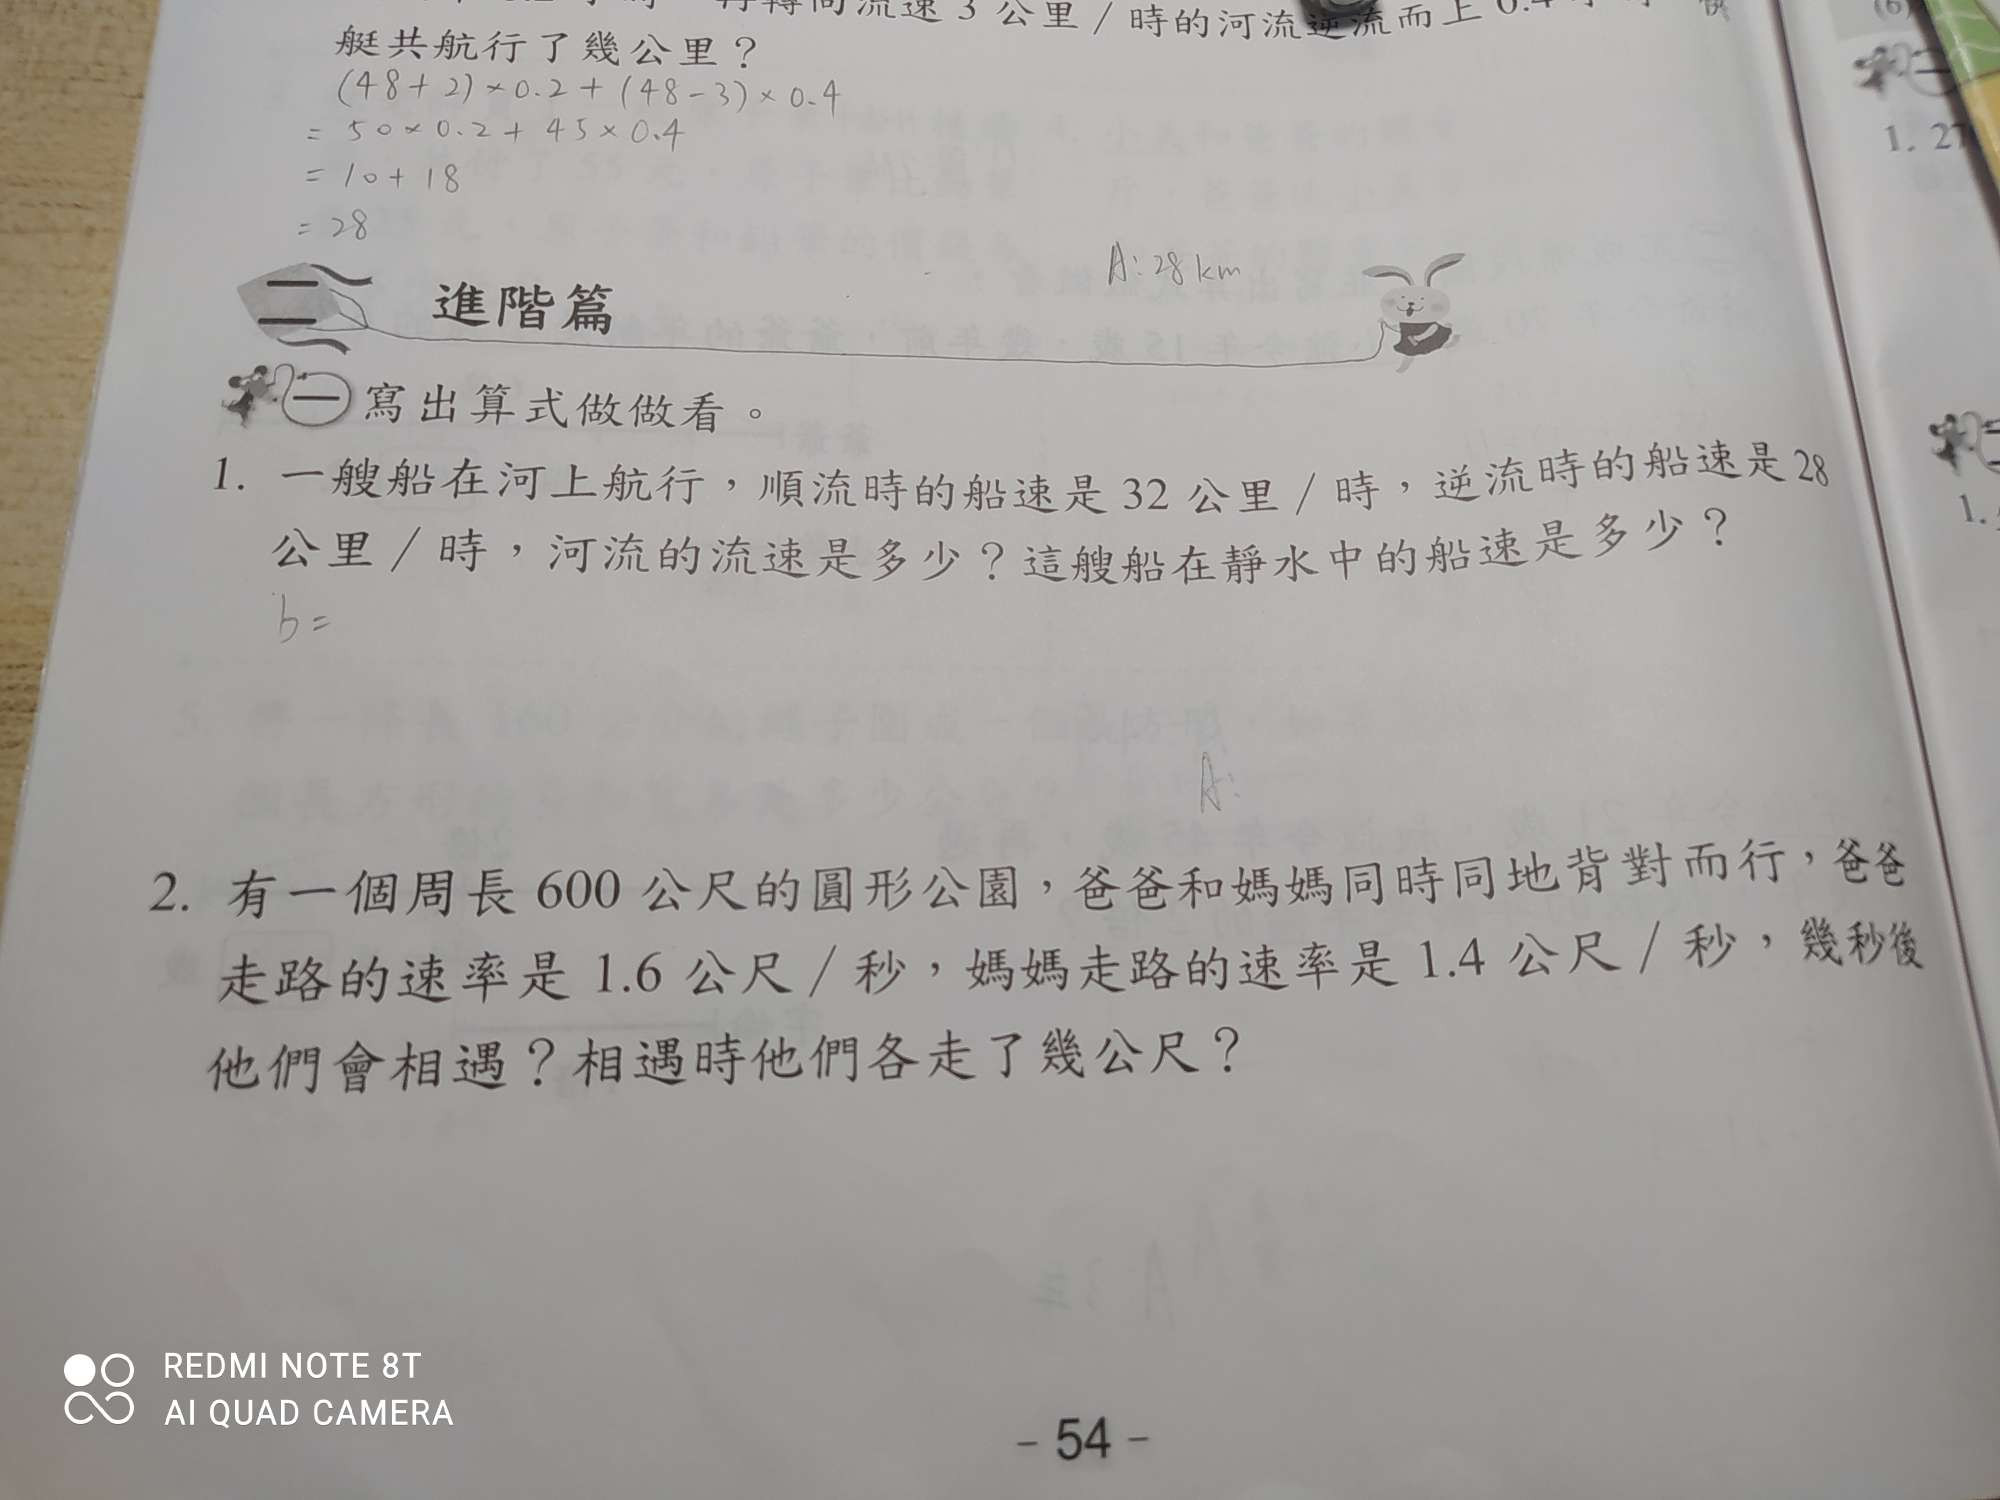 流速 3 公里／時的河流逆流而上 0.4
艇共航行了幾公里？
(48+2)×0.2+(48-3)×0.4
= 50×0.2+45×0.4
= 10+18
= 28
A: 28 km
二 進階篇
一 寫出算式做做看。
1. 一艘船在河上航行，順流時的船速是 32 公里／時，逆流時的船速是 28
公里／時，河流的流速是多少？這艘船在靜水中的船速是多少？
b=
A:
2. 有一個周長 600 公尺的圓形公園，爸爸和媽媽同時同地背對而行，爸爸
走路的速率是 1.6 公尺／秒，媽媽走路的速率是 1.4 公尺／秒，幾秒後
他們會相遇？相遇時他們各走了幾公尺？
REDMI NOTE 8T
AI QUAD CAMERA
- 54 -
(6)
一
1. 27
1.